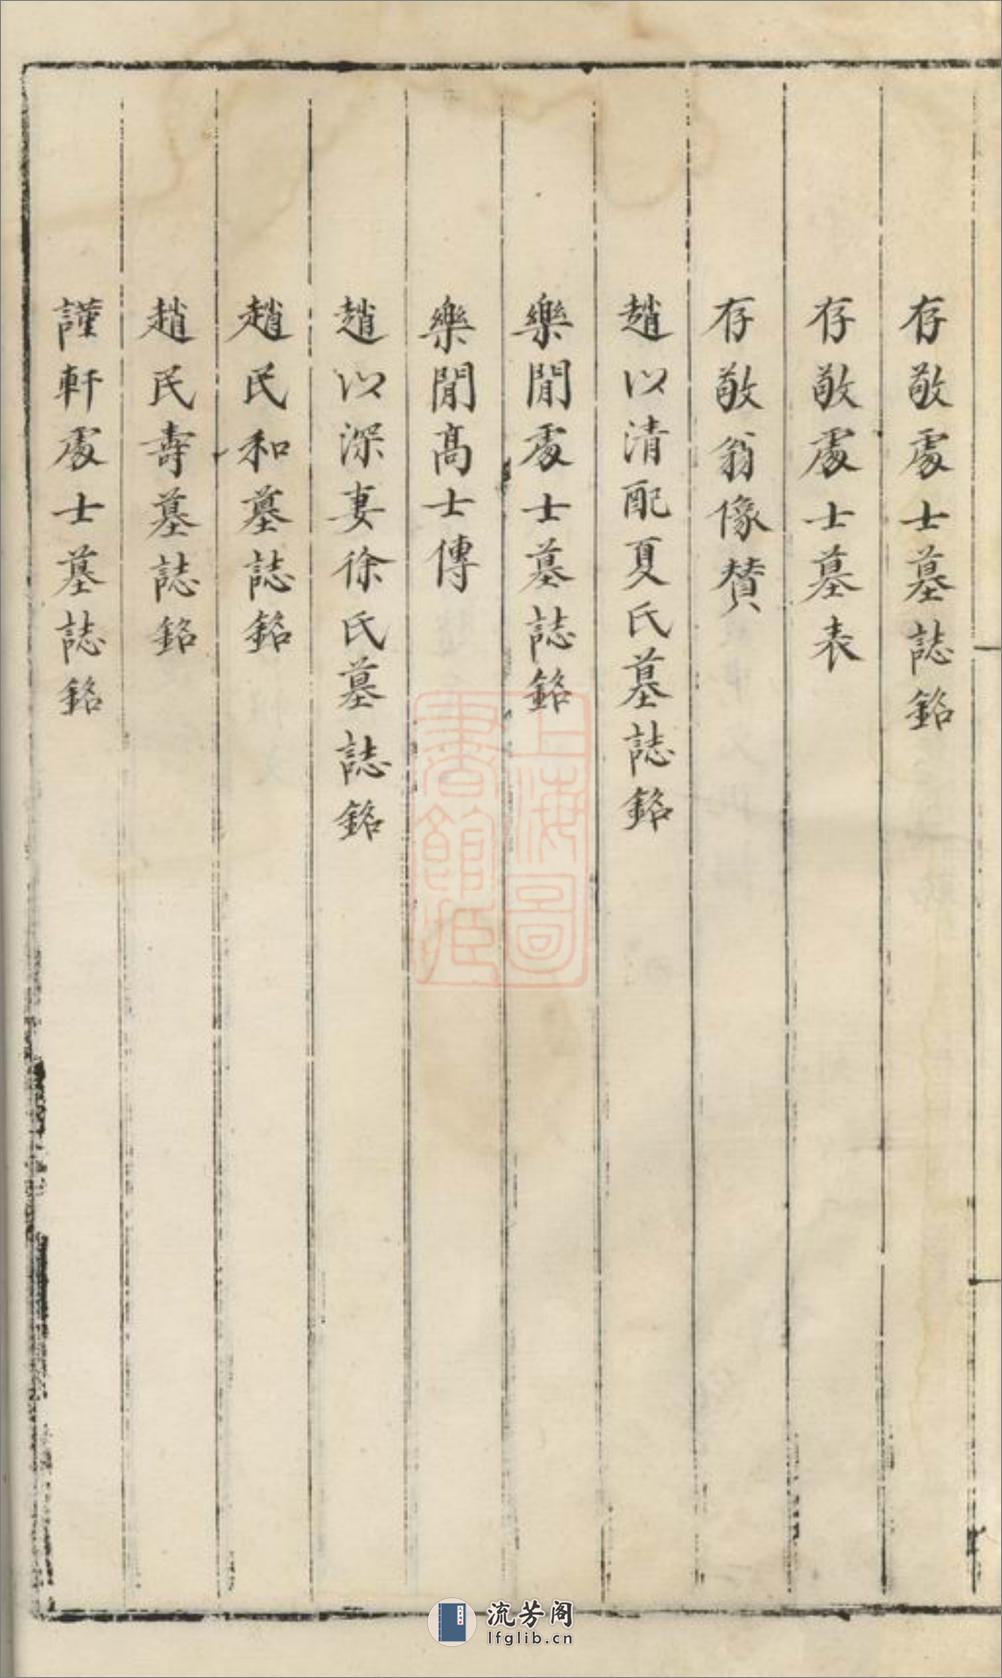 存敬處士墓誌銘
存敬處士墓表
存敬翁像賛
趙以清配夏氏墓誌銘
樂閒處士墓誌銘
樂閒高士傳
趙以深妻徐氏墓誌銘
趙民和墓誌銘
趙民壽墓誌銘
謹軒處士墓誌銘
上海圖
書館藏
流芳阁
lfglib.cn